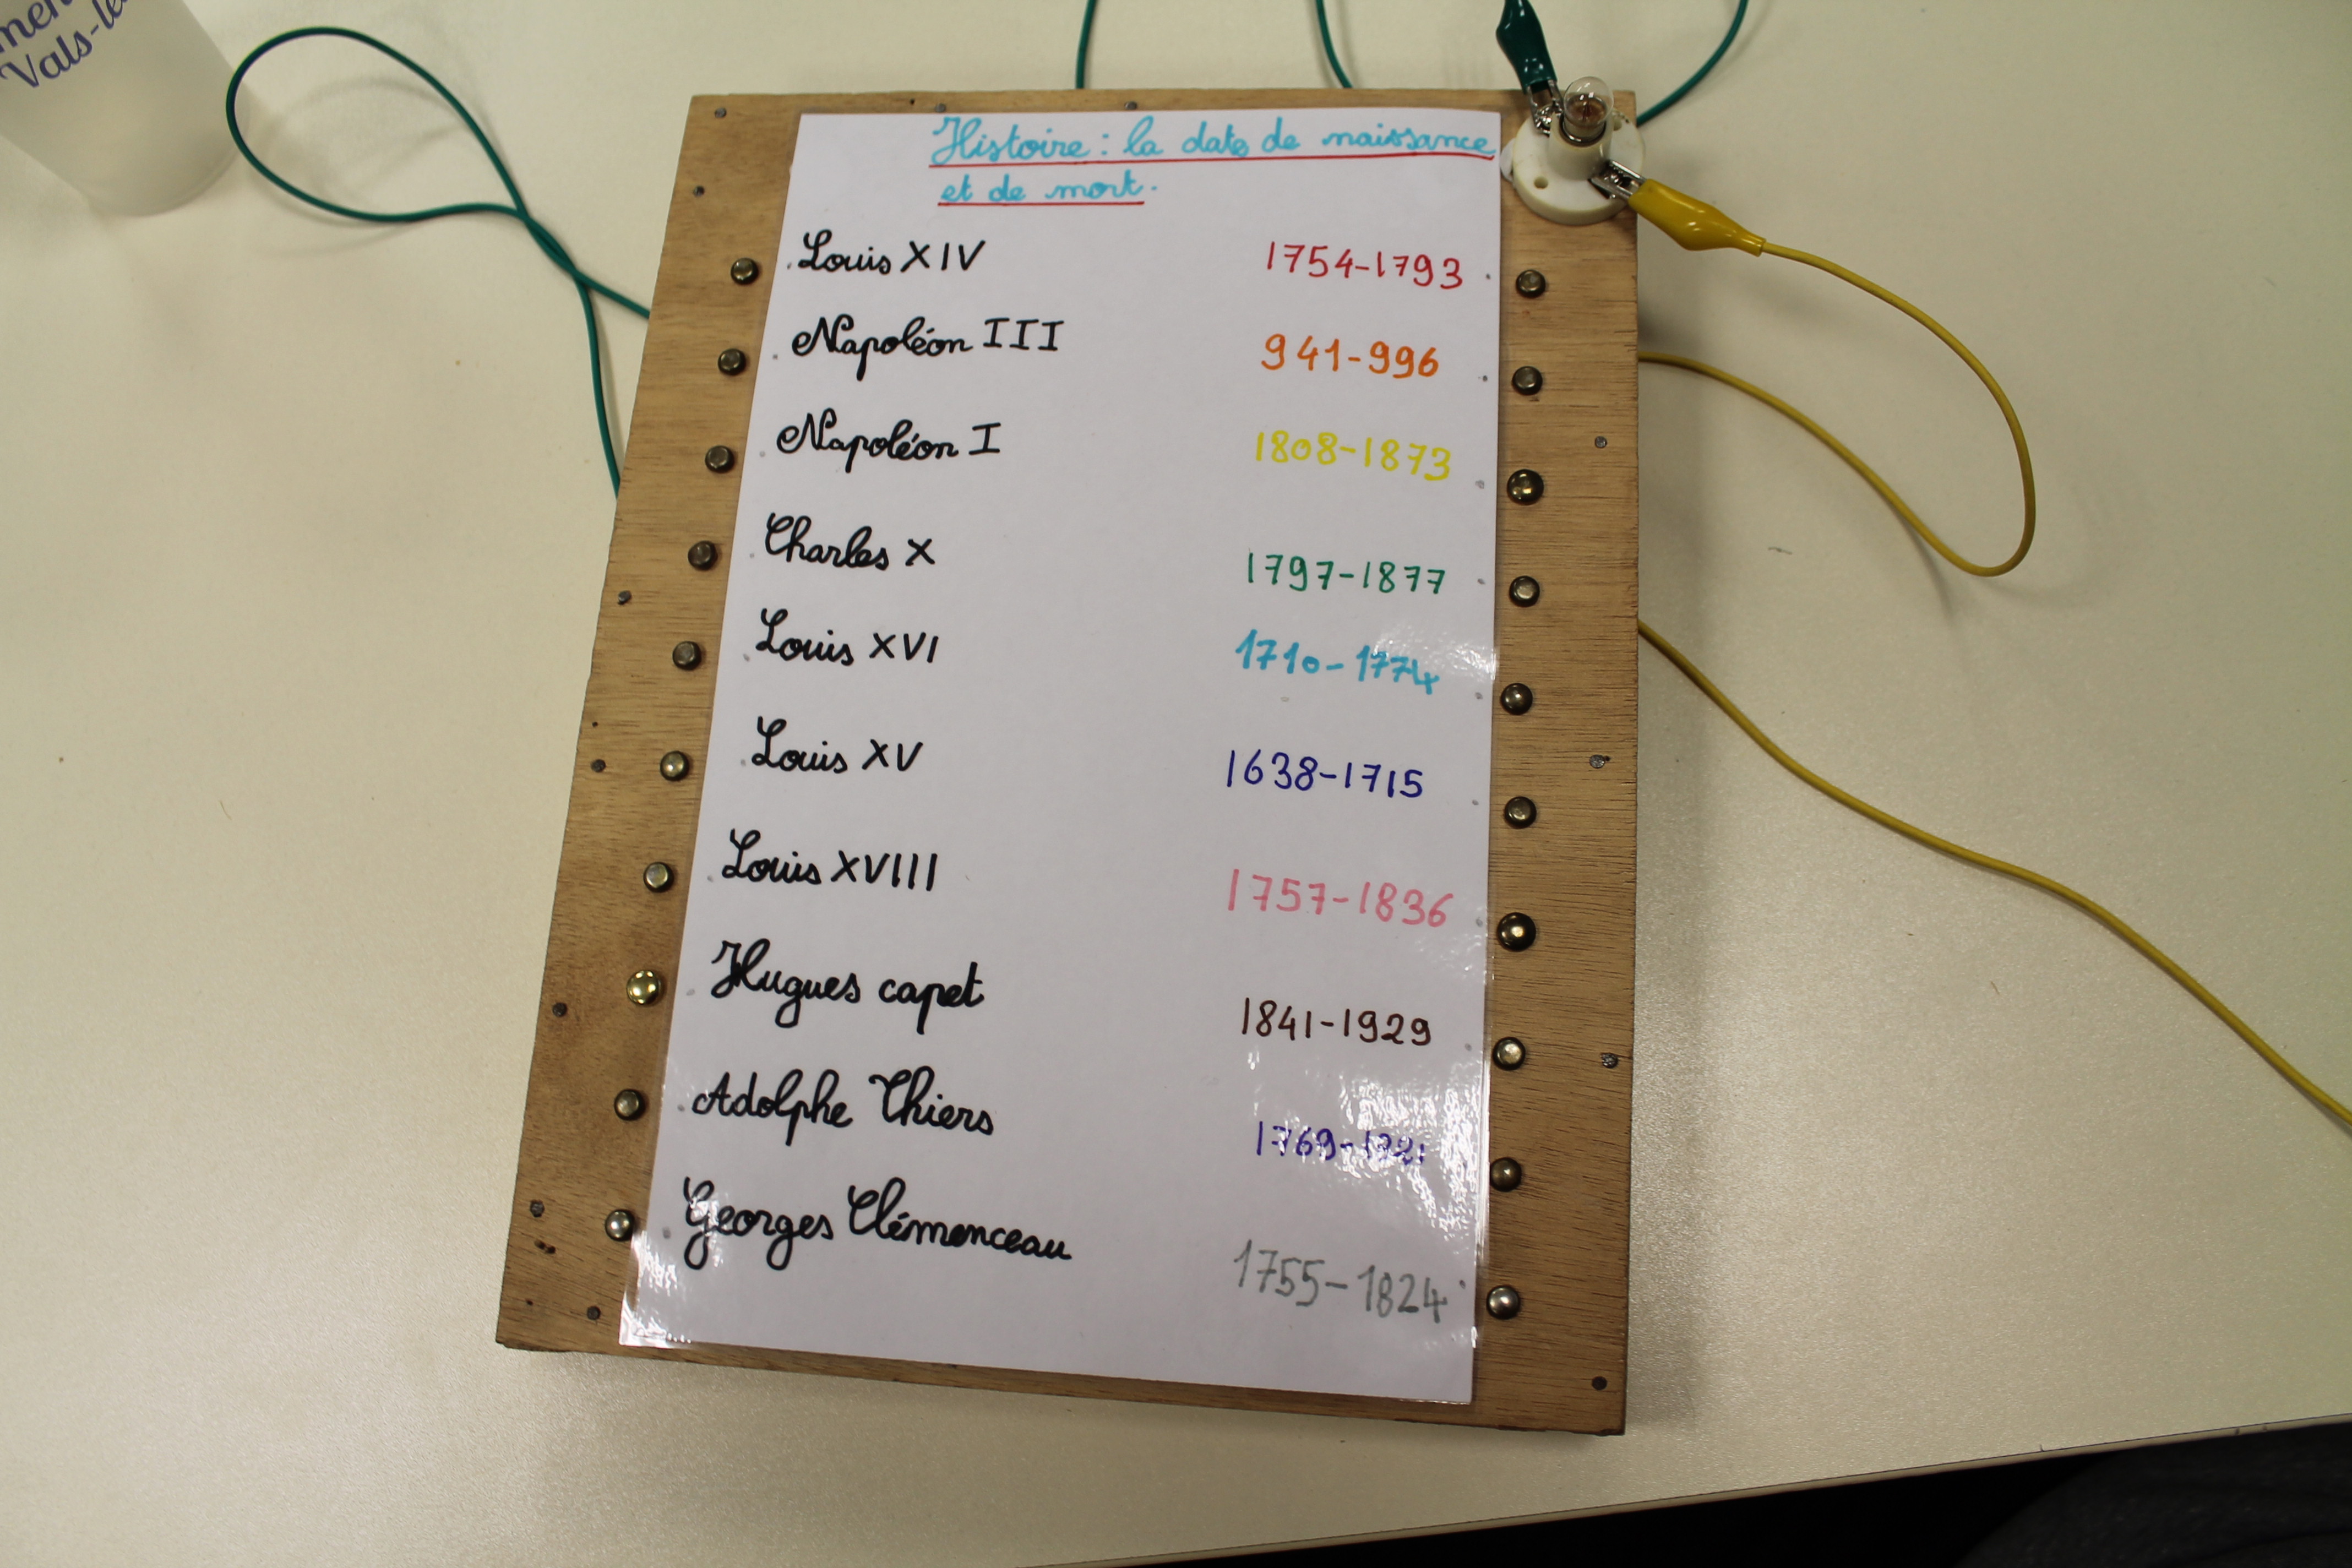 Vals-le
Histoire : la date de naissance
et de mort.
Louis XIV 1754-1793
Napoléon III 941-996
Napoléon I 1808-1873
Charles X 1797-1877
Louis XVI 1710-1774
Louis XV 1638-1715
Louis XVIII 1757-1836
Hugues capet 1841-1929
Adolphe Thiers 1769-1821
Georges Clémenceau 1755-1824